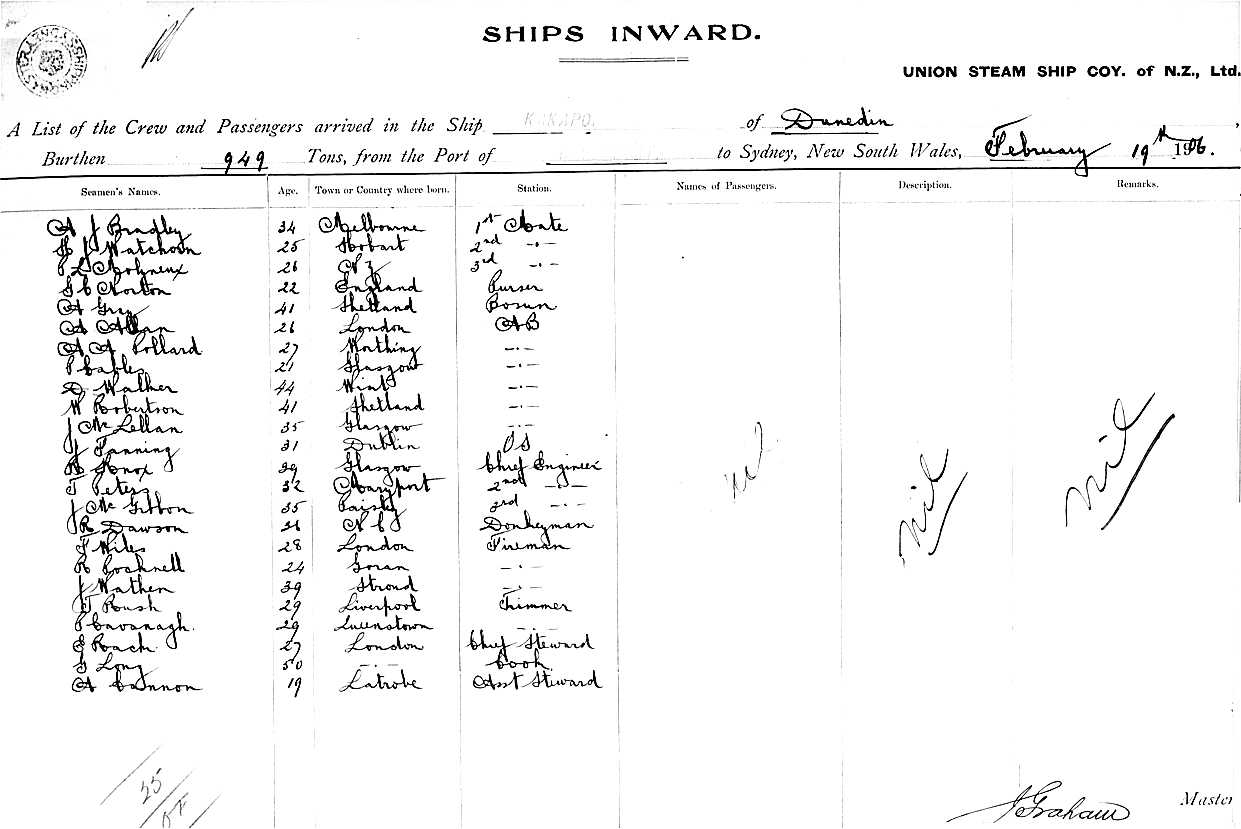 SHIPS INWARD.
UNION STEAM SHIP COY. of N.Z., Ltd.
A List of the Crew and Passengers arrived in the Ship KAKAPO. of Dunedin,
Burthen 949 Tons, from the Port of to Sydney, New South Wales, February 19th 1906.
Seamen's Names. Age. Town or Country where born. Station. Names of Passengers. Description. Remarks.
A J Bradley 34 Melbourne 1st Mate
H J Watchorn 25 Hobart 2nd -·-
P L Molyneux 26 N Z 3rd -·-
G C Norton 22 England Purser
A Gray 41 Shetland Bosun
A Allan 26 London AB
A A Pollard 27 Worthing -·-
P Cables 21 Glasgow -·-
D Walker 44 -·-
W Robertson 41 Shetland -·-
J McLellan 35 Glasgow -·-
J Fanning 31 Dublin OS
R Knox 39 Glasgow Chief Engineer
T Peters 32 Maryport 2nd -·-
J McGibbon 35 Paisley 3rd -·-
R Dawson 36 N C Donkeyman
F Wiles 28 London Fireman
R Bocknell 24 Goran -·-
J Wathen 39 Stroud -·-
T Rush 29 Liverpool Trimmer
P Cavanagh. 29 Queenstown -·-
E Roach 27 London Chief Steward
G Long 50 -·- Cook
A Cannon 19 Latrobe Asst Steward
nil nil nil
25
J Graham Master